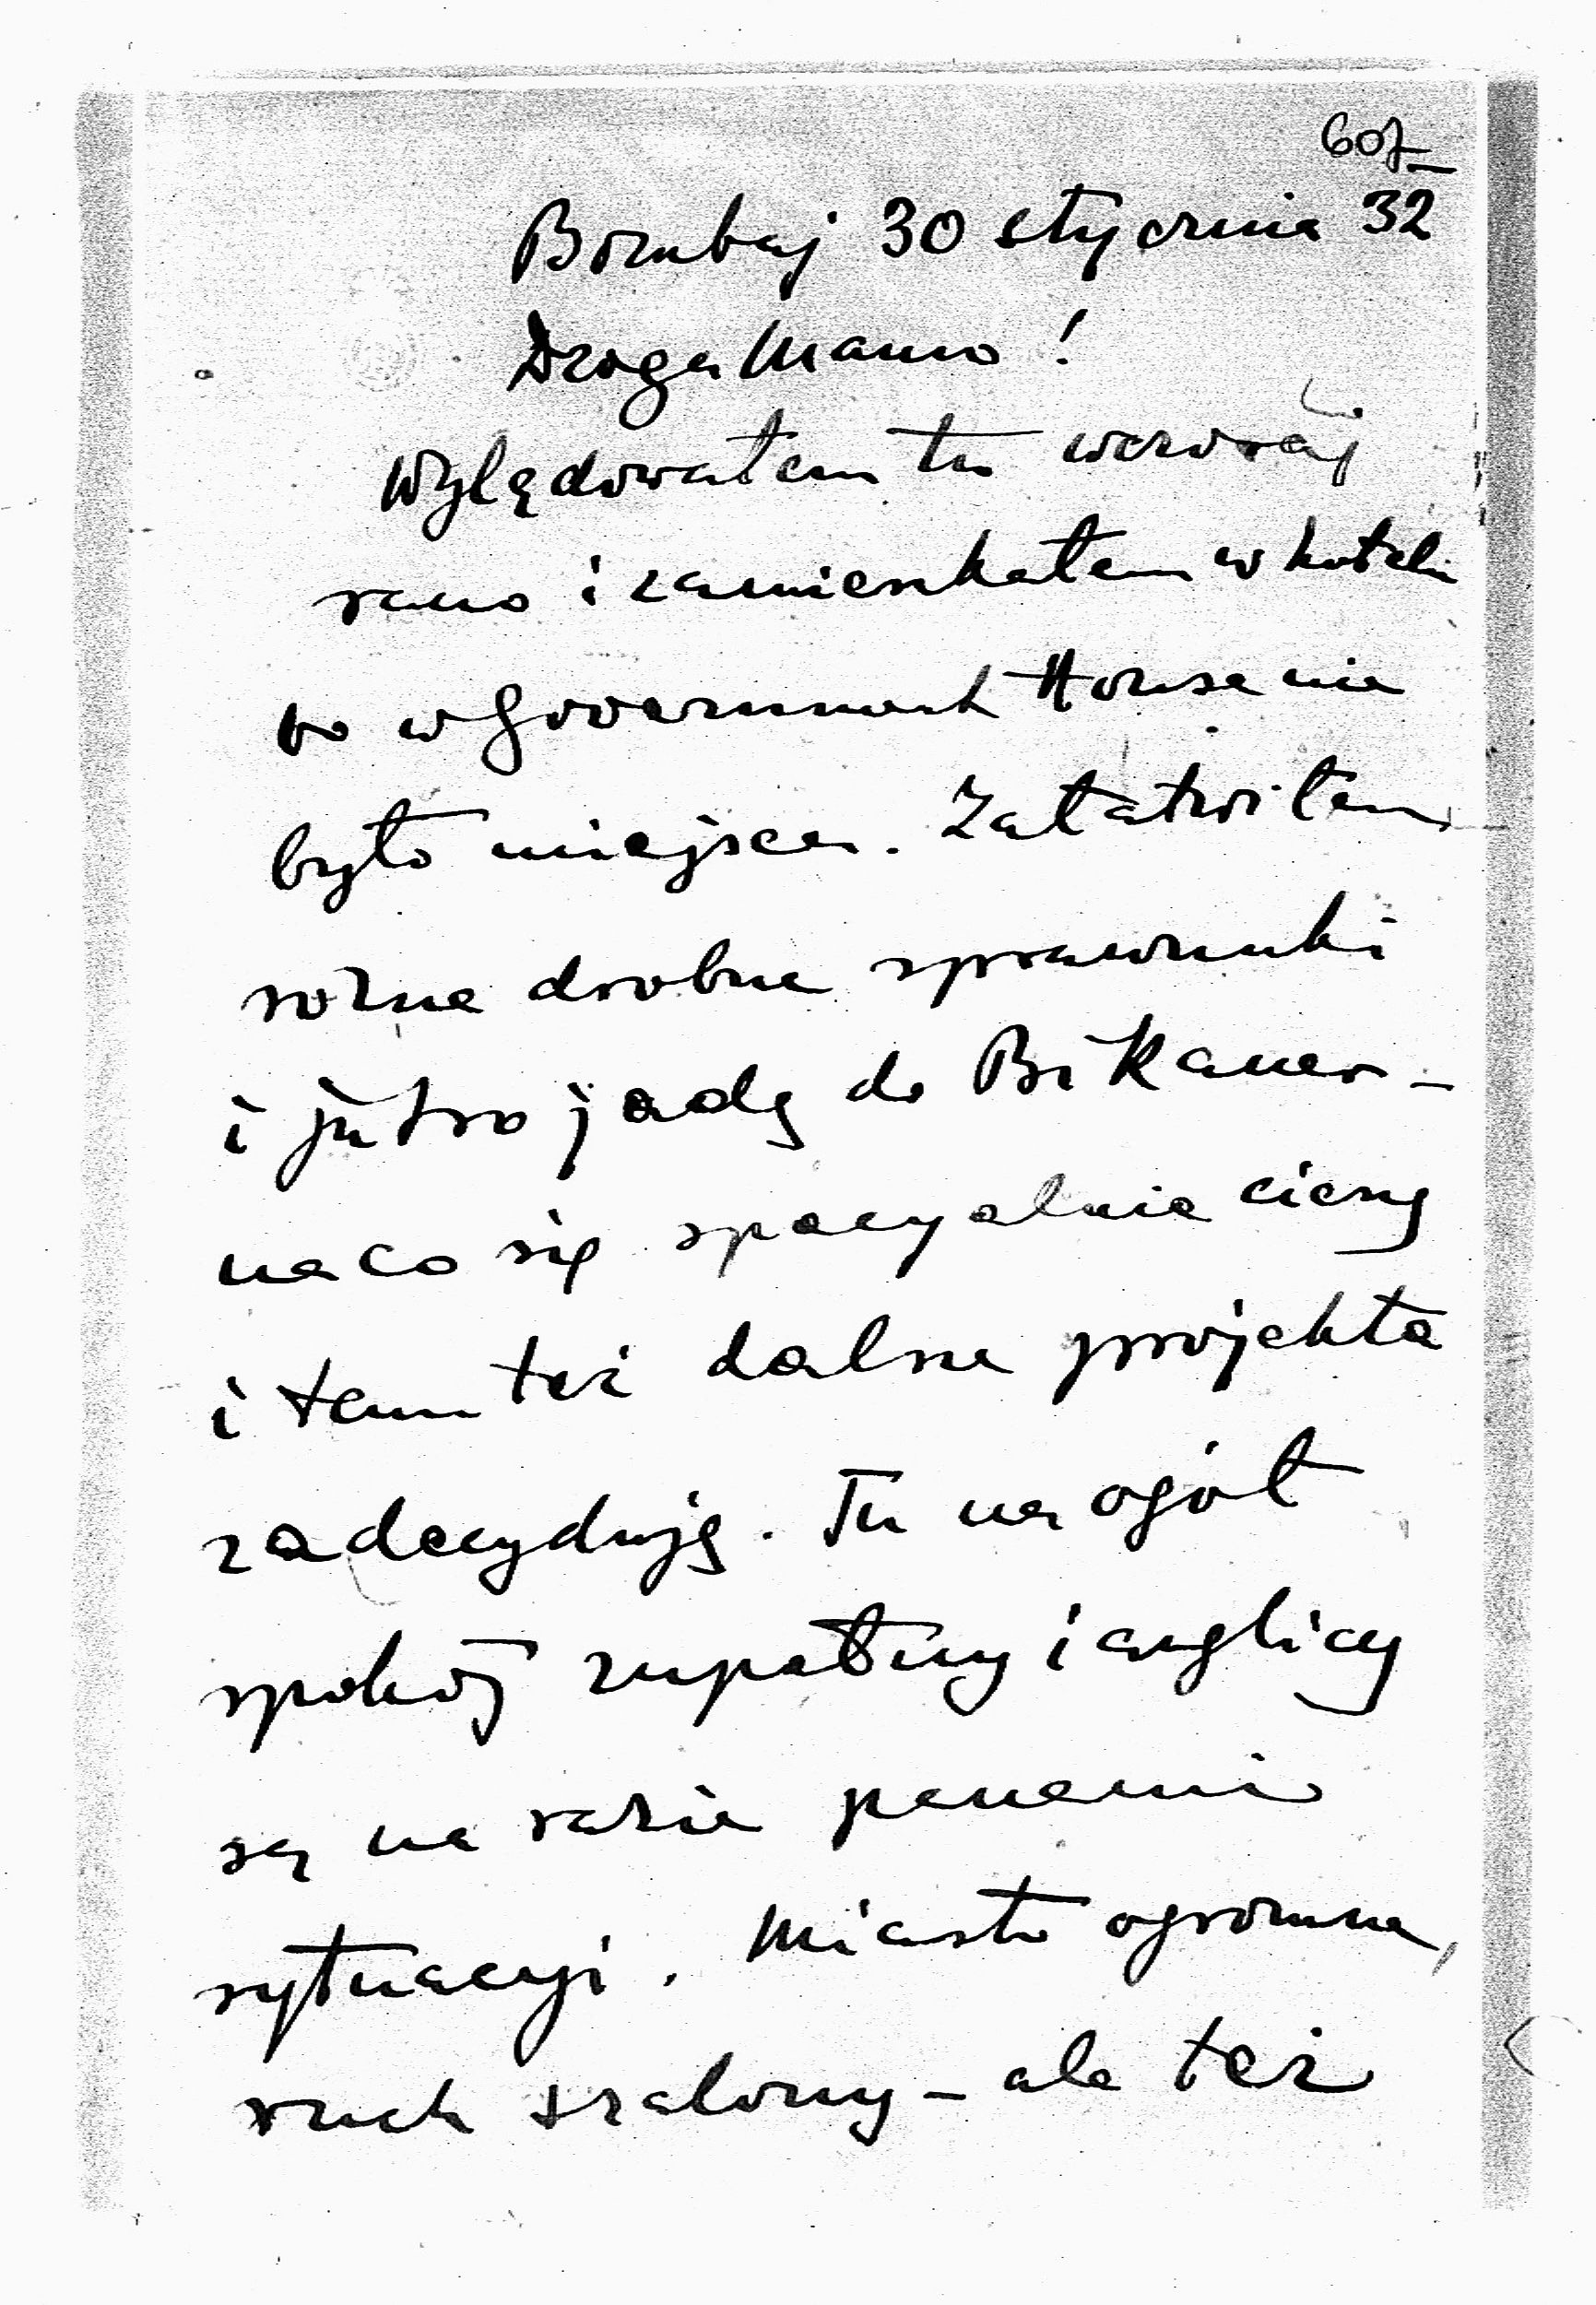 607
Bombaj 30 stycznia 32
Droga Mamo!
Wylądowałem tu wczoraj
rano i zamieszkałem w hotelu
bo w Government House nie
było miejsca. Załatwiłem
rożne drobne sprawunki
i jutro jadę do Bikaner -
na co się specyalnie cieszę
i tam też dalsze projekta
zadecyduję. Tu na ogół
spokój zupełny i anglicy
są na razie panami
sytuacyi. Miasto ogromne,
ruch szalony - ale też